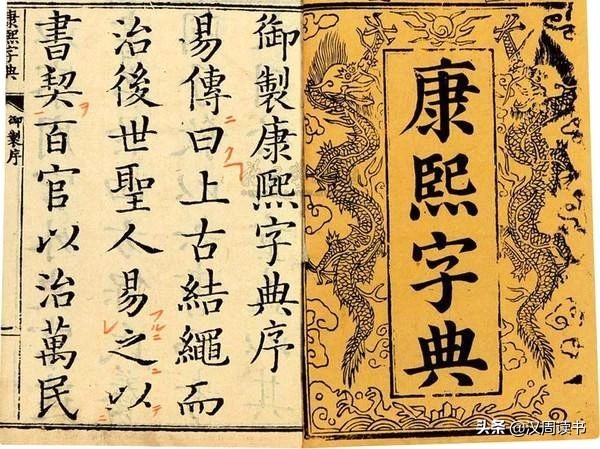 康熙字典
御製康熙字典序
易傳曰上古結繩而
治後世聖人易之以
書契百官以治萬民
康熙字典
御製序
头条@汉周读书